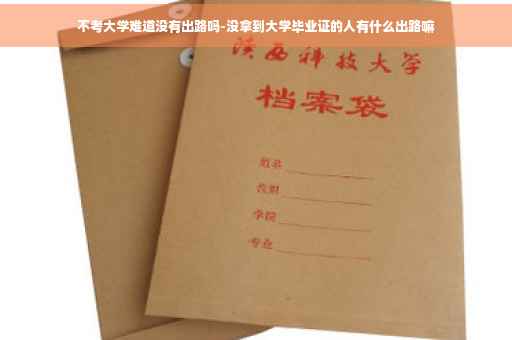 不考大学难道没有出路吗-没拿到大学毕业证的人有什么出路嘛
陕西科技大学
档案袋
姓名
学院
专业